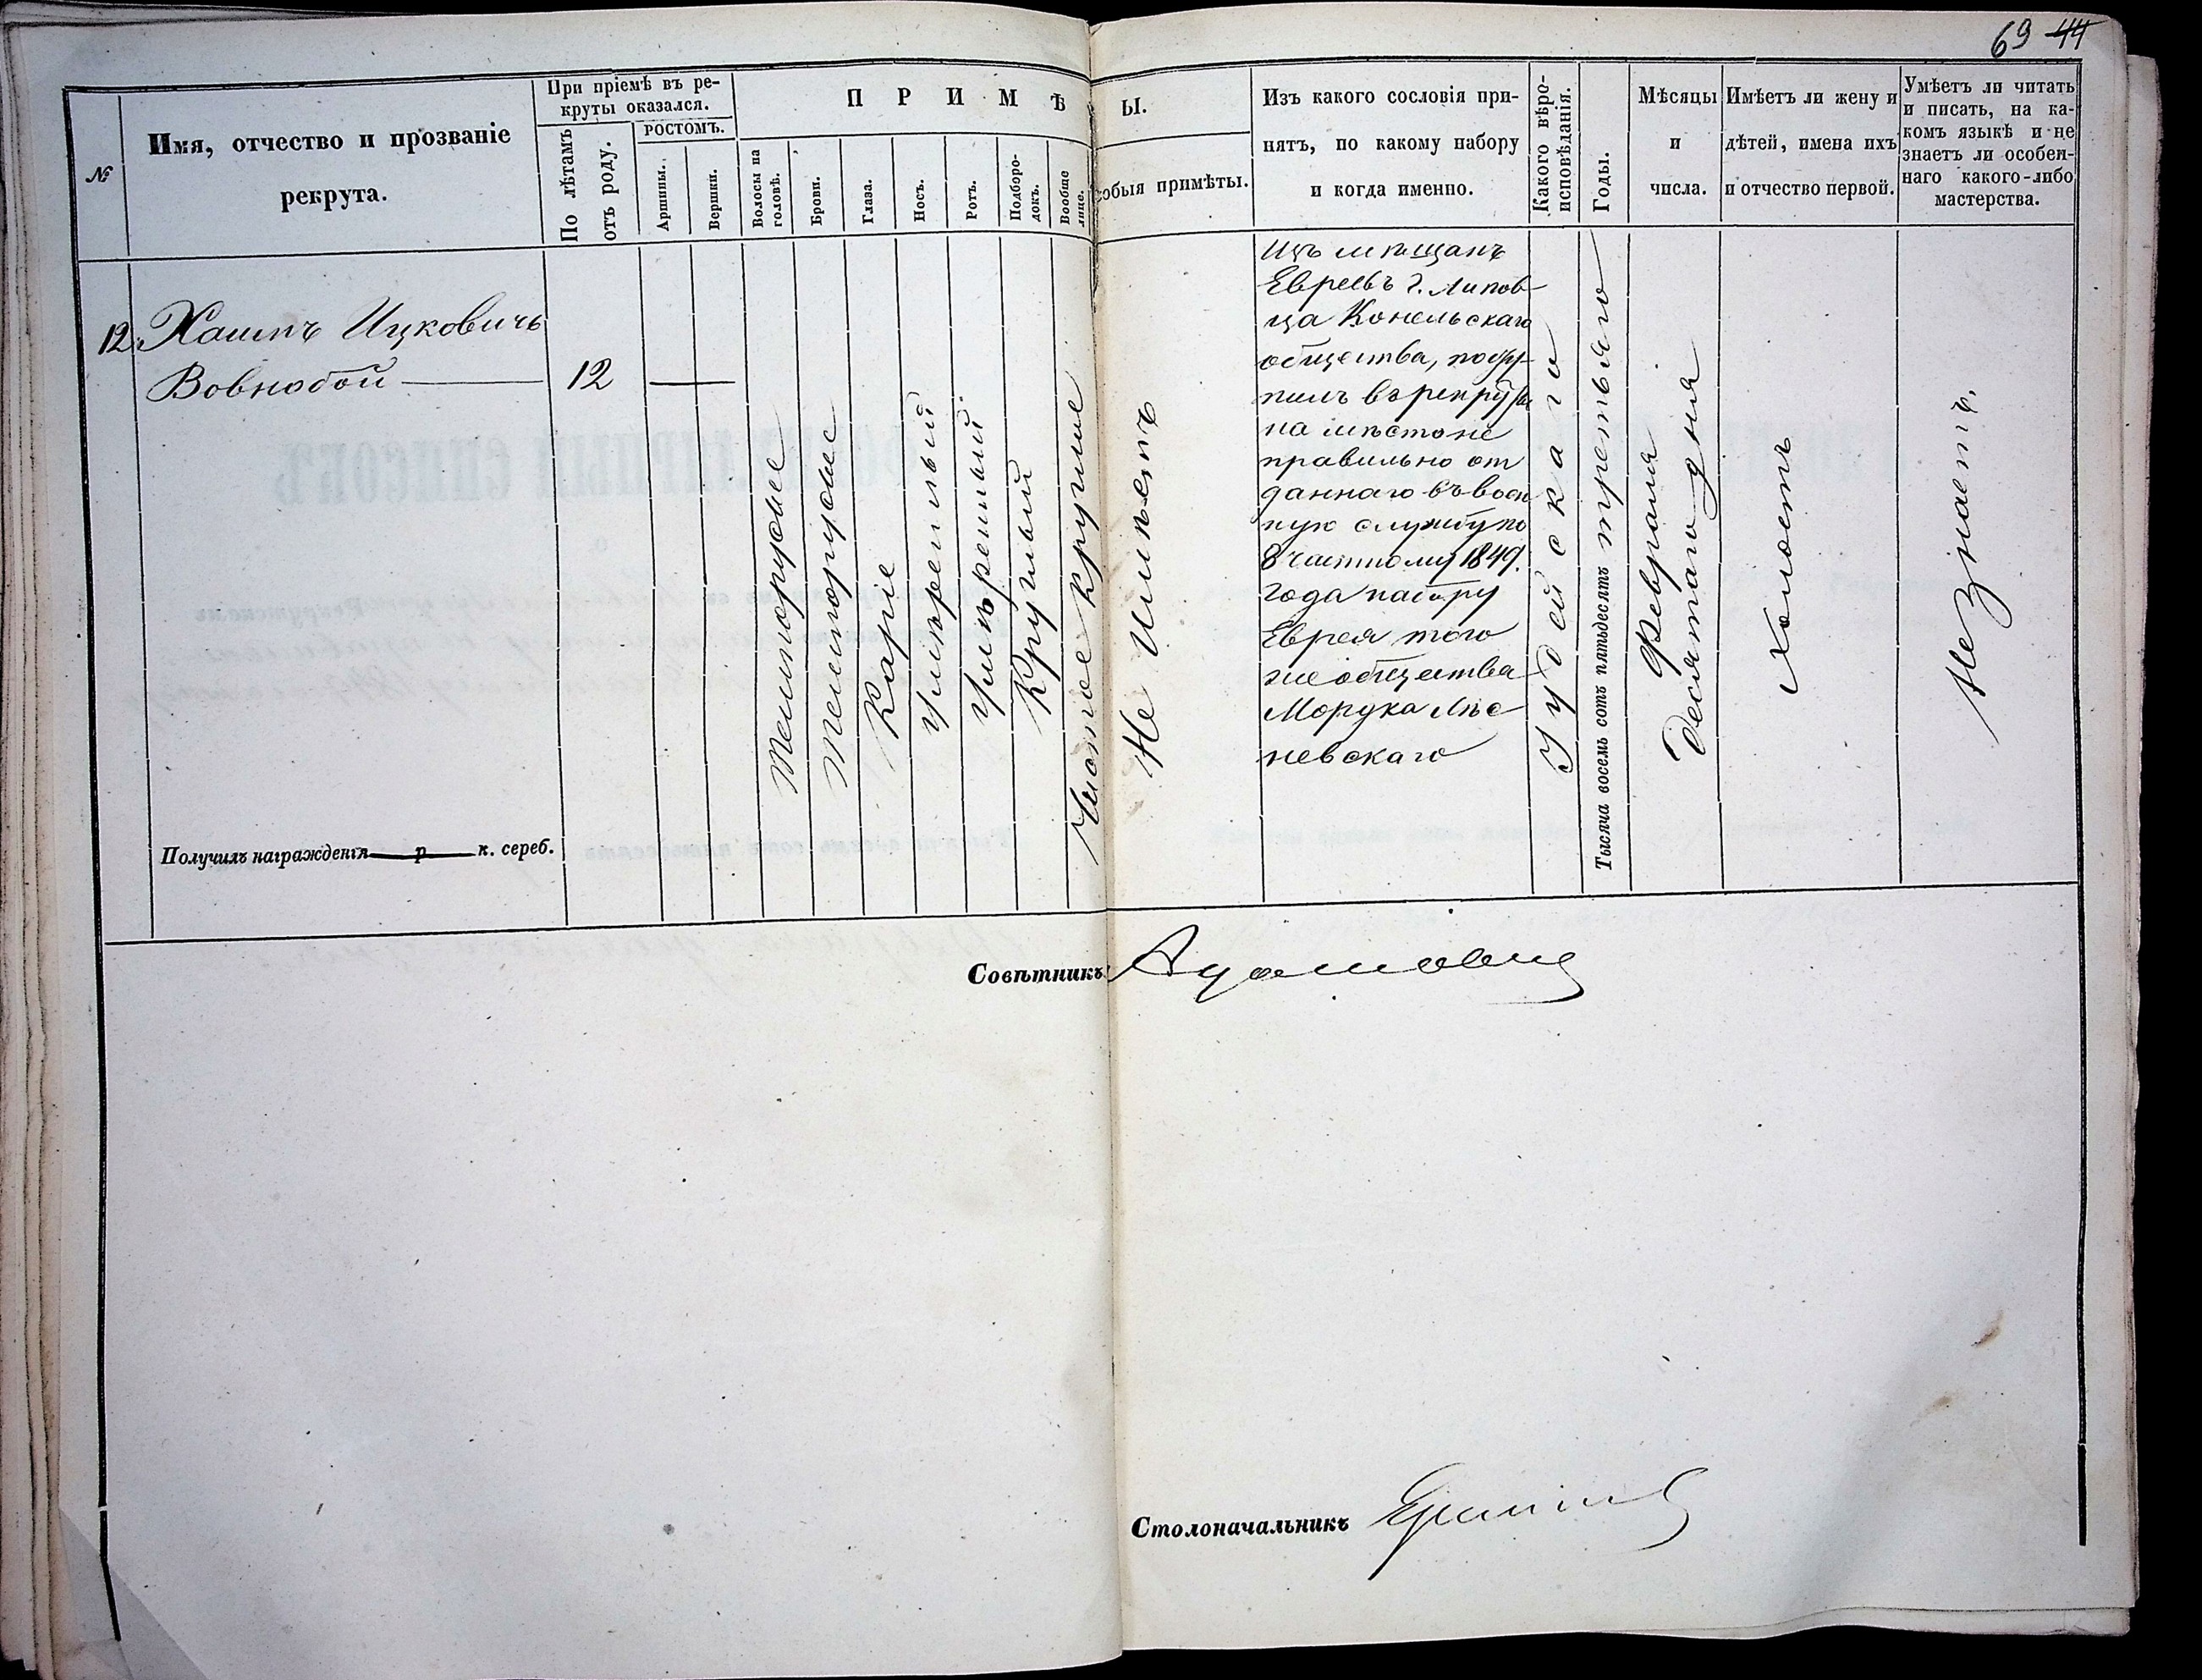 69 44
№
Имя, отчество и прозваніе
рекрута.
При пріемѣ въ ре-
круты оказался.
По лѣтамъ
отъ роду.
РОСТОМЪ.
Аршины.
Вершки.
П Р И М Ѣ
Волосы на
головѣ.
Брови.
Глаза.
Носъ.
Ротъ.
Подборо-
докъ.
Вообще
лице.
Ы.
собыя примѣты.
Изъ какого сословія при-
нятъ, по какому набору
и когда именно.
Какого вѣро-
исповѣданія.
Годы.
Мѣсяцы
и
числа.
Имѣетъ ли жену и
дѣтей, имена ихъ
и отчество первой.
Умѣетъ ли читать
и писать, на ка-
комъ языкѣ и не
знаетъ ли особен-
наго какого-либо
мастерства.
12 Хаимъ Ицковичъ
Вовнобой
12
Темнорусые
Темнорусые
Каріе
Умѣренный
Умѣренный
Круглый
Чистое круглые
Не Имѣетъ
Изъ мѣщанъ
Евреевъ г. Липов-
ца Конельскаго
общества,
на мѣсто не
правильно от
даннаго въ воен
ную службу по
8 частному 1849.
года набору
Еврея того
же общества
Морука Лѣс-
невскаго
Іудейскаго
Тысяча восемь сотъ пятьдесятъ третьяго
Февраля
Десятаго дня
Холостъ
Не Знаетъ.
Получилъ награжденія р. к. сереб.
Совѣтникъ Адамовичъ
Столоначальникъ